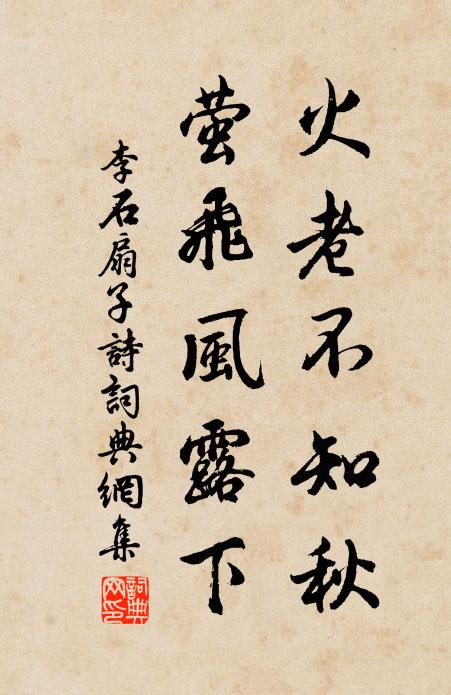 火老不知秋
萤飛風露下
李石扇子詩詞典網集
詞典网印